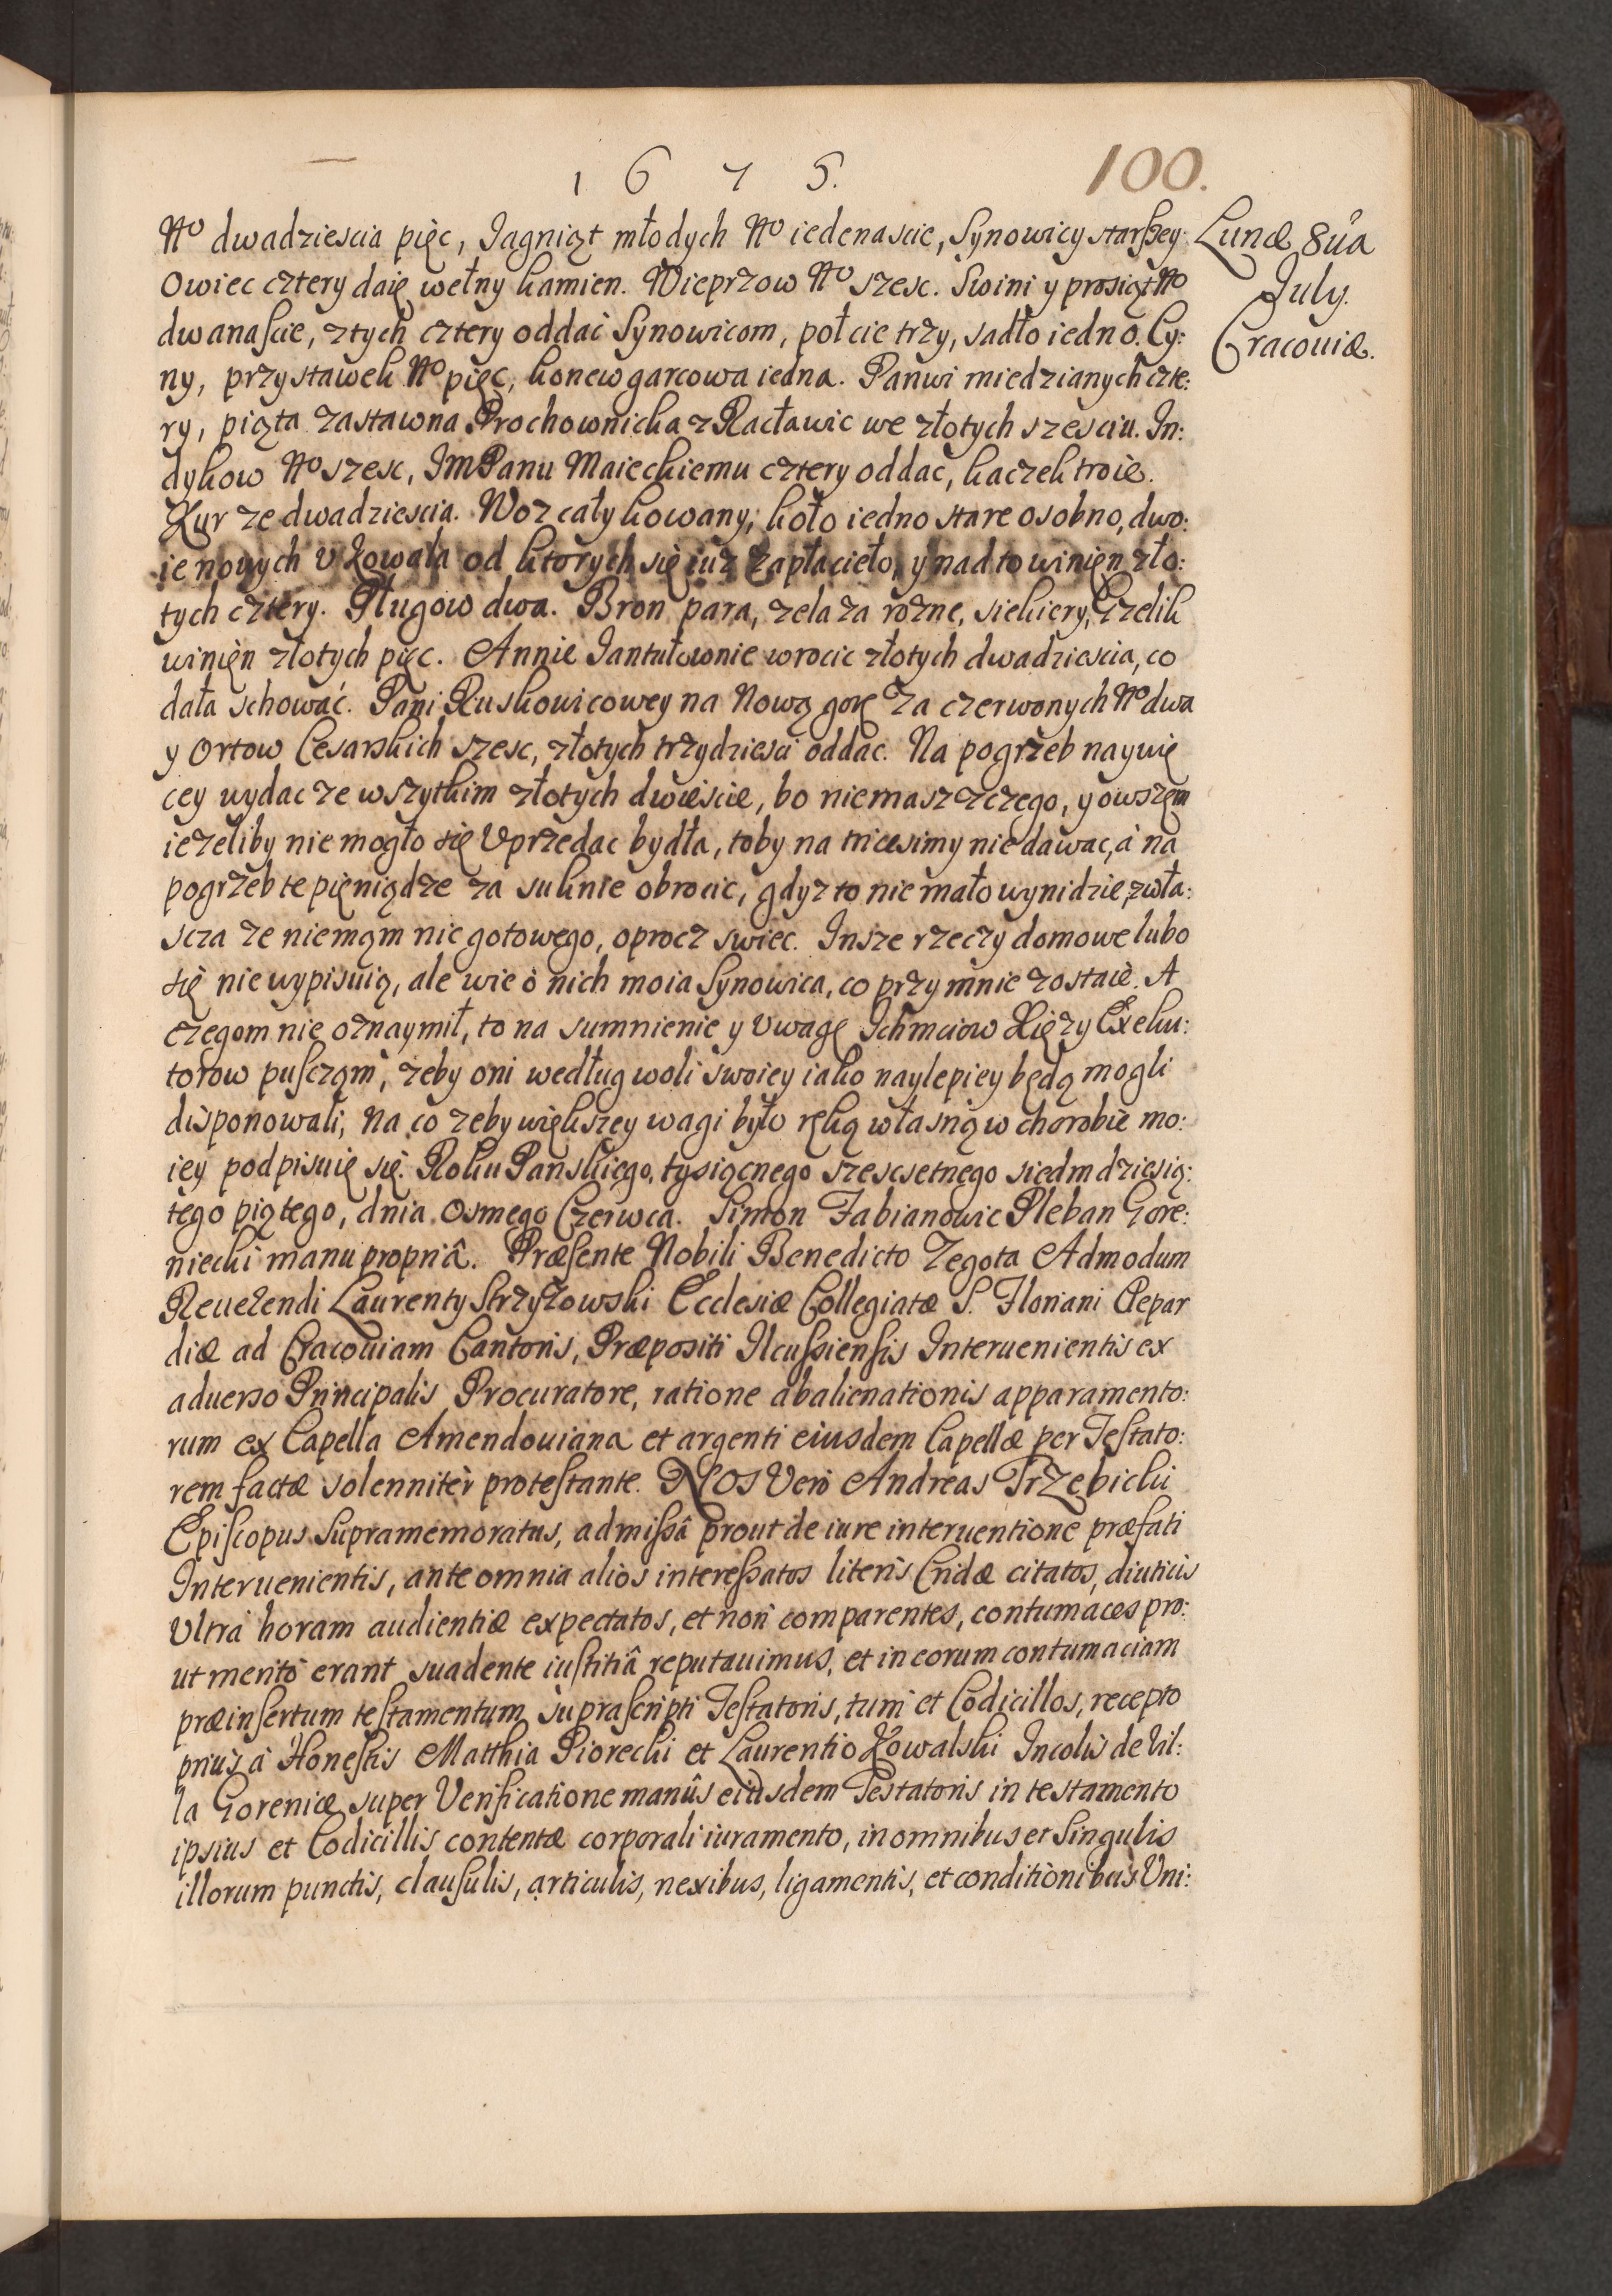 1675.
100.
No dwadziescia pięc, Jagniąt młodych No iedenascie, Synowicy starszey
Owiec cztery daię wełny kamien. Wieprzow No szesc. Swini y prosiąt No
dwanascie, z tych cztery oddać Synowicom, połcie trzy, sadło iedno. Cy:
ny, przystawek No pięc, konew garcowa iedna. Panwi miedzianych czte:
ry, piąta zastawna Prochownicka z Racławic we złotych szesciu. In:
dykow No szesc, JmPanu Maieckiemu cztery oddac, kaczek troie.
Kur ze dwadziescia. Woz cały kowany, koło iedno stare osobno, dwo:
ie nowych v Kowala od ktorych się iuz zapłacieło, y nad to winięn zło:
tych cztery. Pługow dwa. Bron para, zelaza rozne, siekiery, Grzelik
winięn złotych pięc. Annie Jantułownie wrocic złotych dwadziescia, co
dała schować. Pani Ruskowicowey na Nową gorę za czerwonych No dwa
y Ortow Cesarskich szesc, złotych trzydziesci oddac. Na pogrzeb naywię
cey wydac ze wszytkim złotych dwiescie, bo niemasz z czego, y owszęm
iezeliby nie mogło się Vprzedac bydła, toby na tricesimy nie dawac, á na
pogrzeb te pięniądze za suknie obrocic, gdyz to nie mało wynidzie, zwła:
scza ze niemąm nic gotowego, oprocz swiec. Insze rzeczy domowe lubo
się nie wypisuią, ale wie o nich moia Synowica, co przy mnie zostaie. A
czegom nie oznaymił, to na sumnienie y Vwagę Ichmciow Xięzy Exeku:
torow puscząm, zeby oni według woli swoiey iako naylepiey będą mogli
disponowali, Na co zeby większey wagi było ręką własną w chorobie mo:
iey podpisuię się. Roku Panskiego, tysiącnego szescsetnego siedmdziesią:
tego piątego, dnia osmego Czerwca. Simon Fabianowic Pleban Gore:
niecki manu propriâ. Præsente Nobili Benedicto Zegota Admodum
Reuerendi Laurenty Strzyzowski Ecclesiæ Collegiatæ S. Floriani Clepar
diæ ad Cracouiam Cantoris, Præpositi Ilcussiensis Interuenientis ex
aduerso Principalis Procuratore, ratione abalienationis apparamento:
rum ex Capella Amendouiana et argenti eiusdem Capellæ per Testato:
rem factæ solennitèr protestante. Nos Verò Andreas Trzebicki
Episcopus Supramemoratus, admissâ prout de iure interuentione præfati
Interuenientis, ante omnia alios interessatos literis Cridæ citatos, diutiùs
Vltrà horam audientiæ expectatos, et non comparentes, contumaces pro:
ut meritò erant suadente iustitiâ reputauimus, et in eorum contumaciam
præinsertum testamentum suprascripti Testatoris, tum et Codicillos, recepto
priùs à Honestis Matthia Piorecki et Laurentio Kowalski Incolis de Vil:
la Goreniæ super Verificatione manûs eiusdem Testatoris in testamento
ipsius et Codicillis contentæ corporali iuramento, in omnibus et Singulis
illorum punctis, clausulis, articulis, nexibus, ligamentis, et conditionibus Vni:
Lunæ 8ua
July.
Cracouiæ.